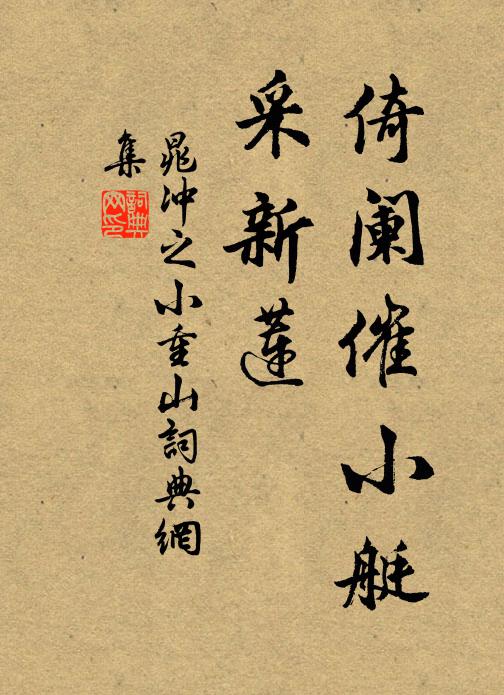 倚阑催小艇
采新莲
晁冲之小重山詞典網
集
詞典
网印